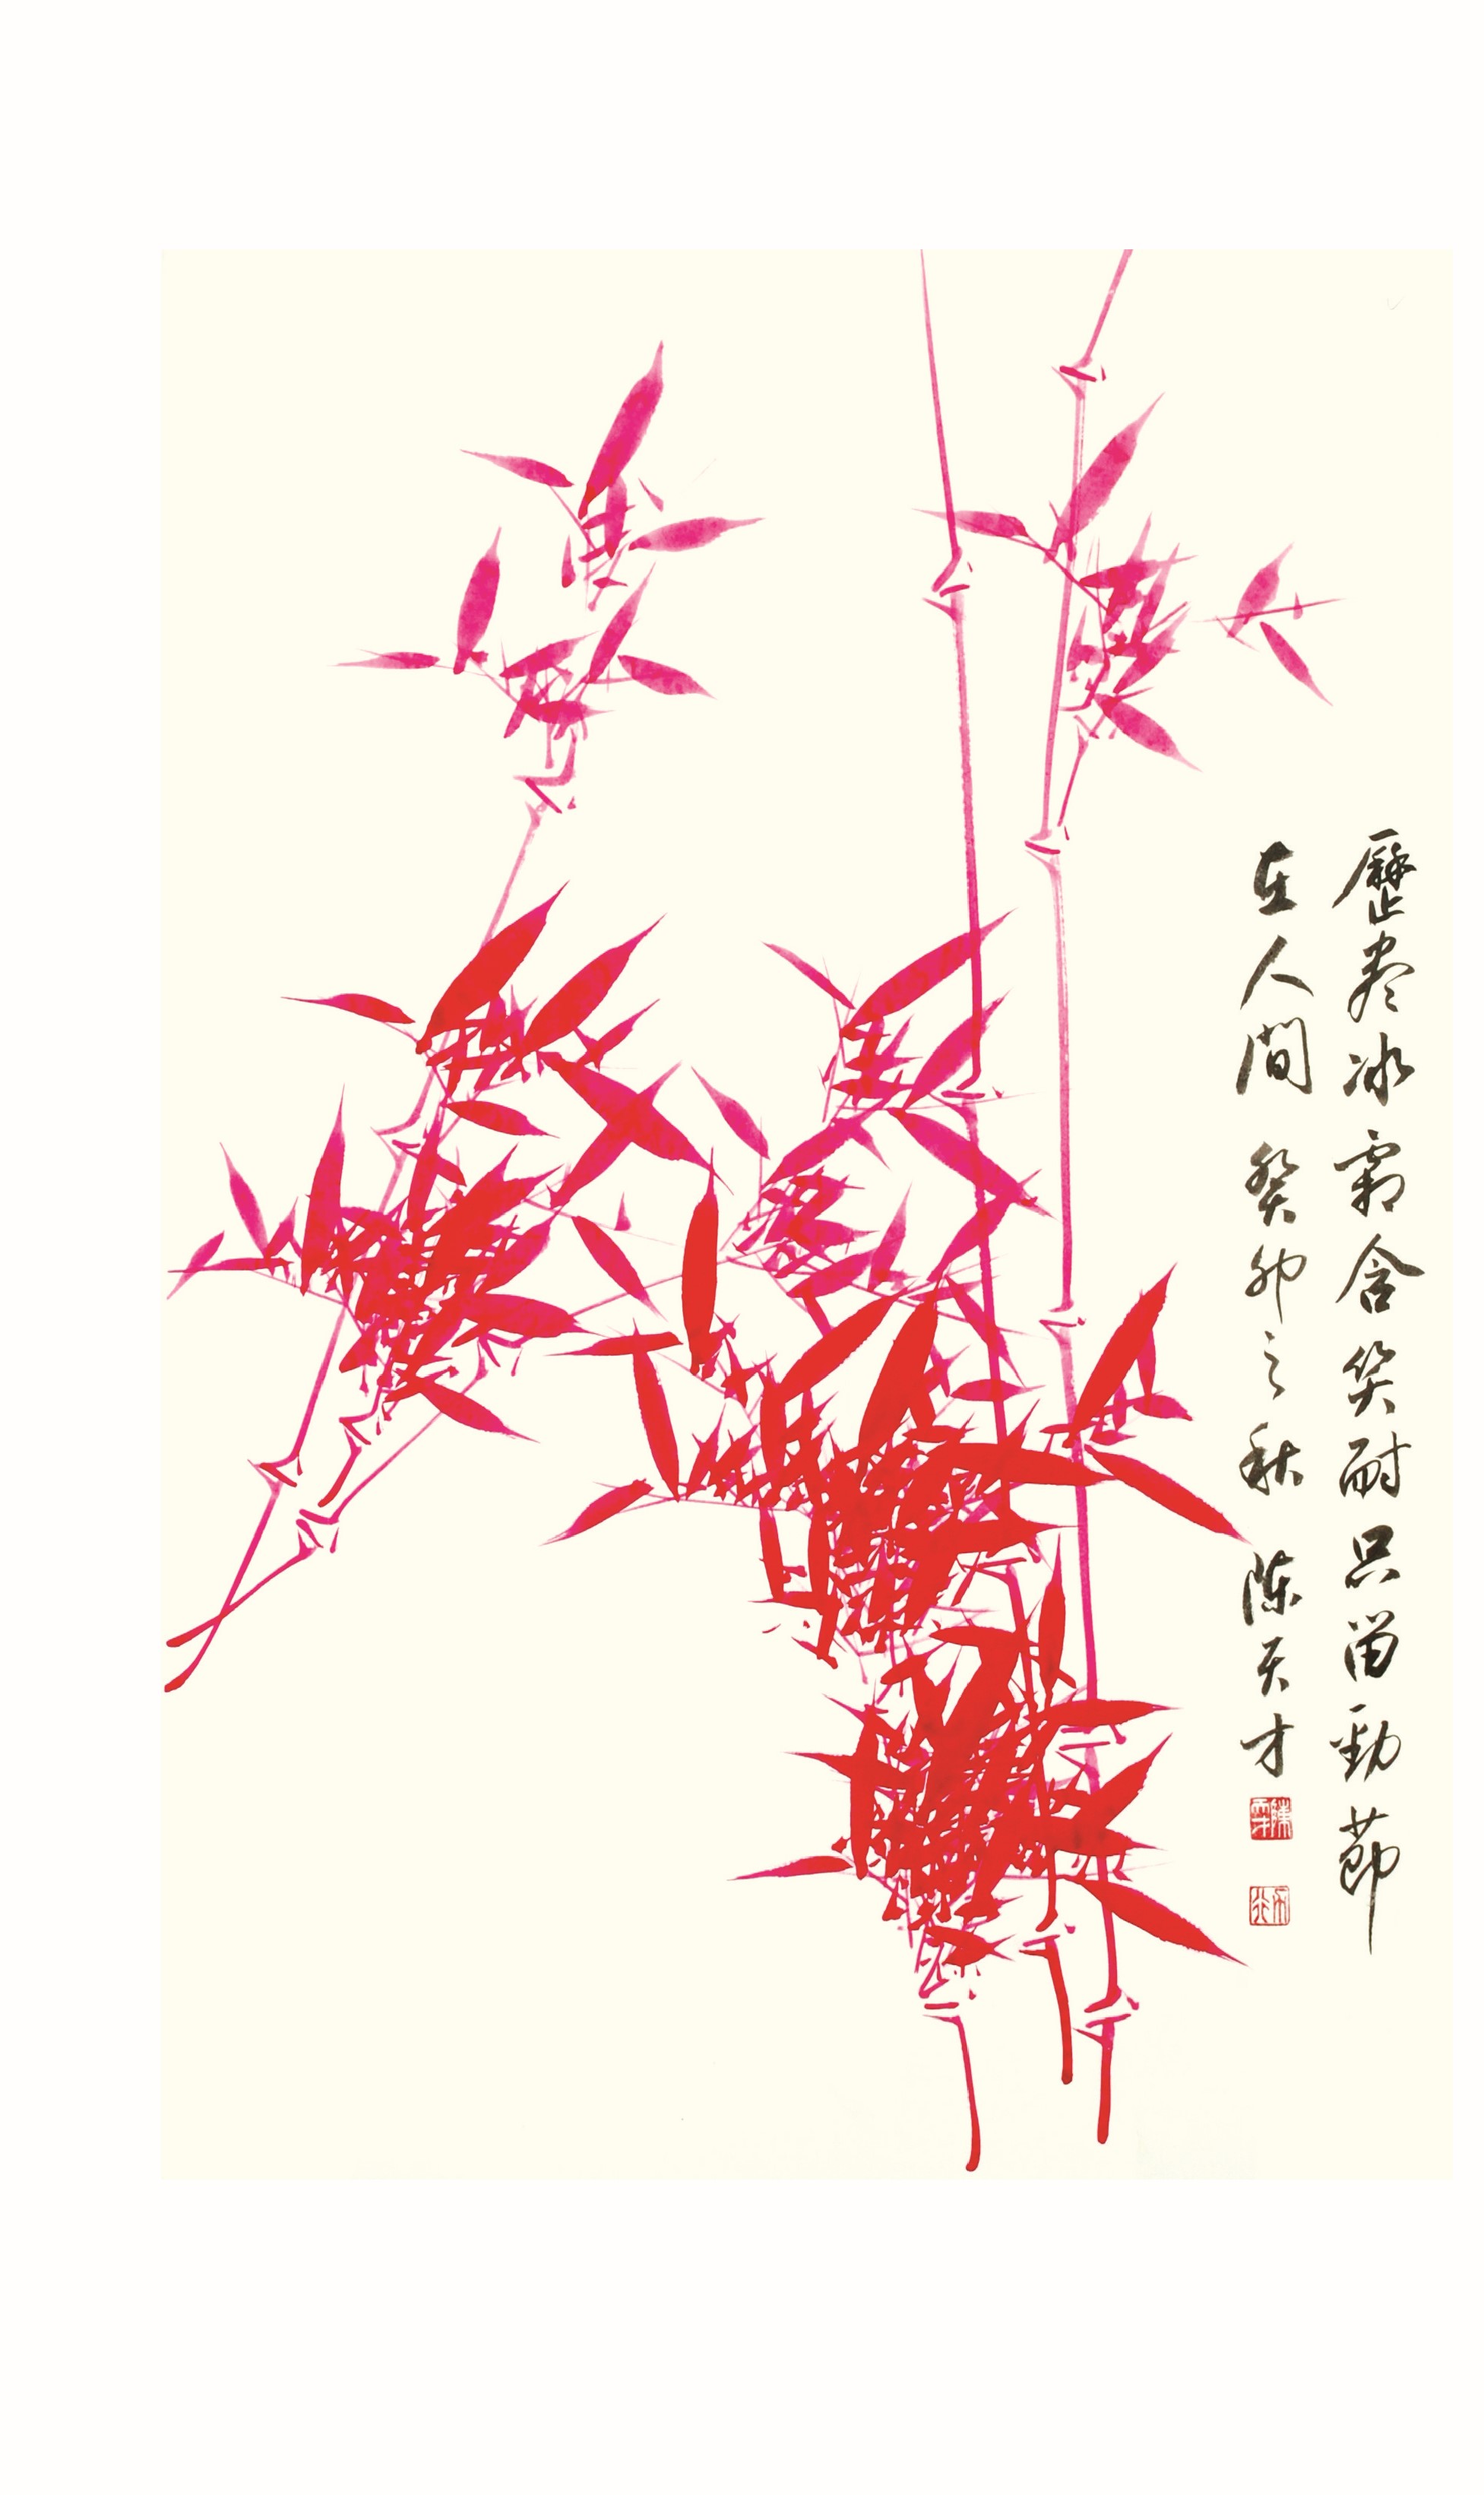 歷尽冰霜含笑耐只留勁節
在人間 癸卯之秋 陈天才